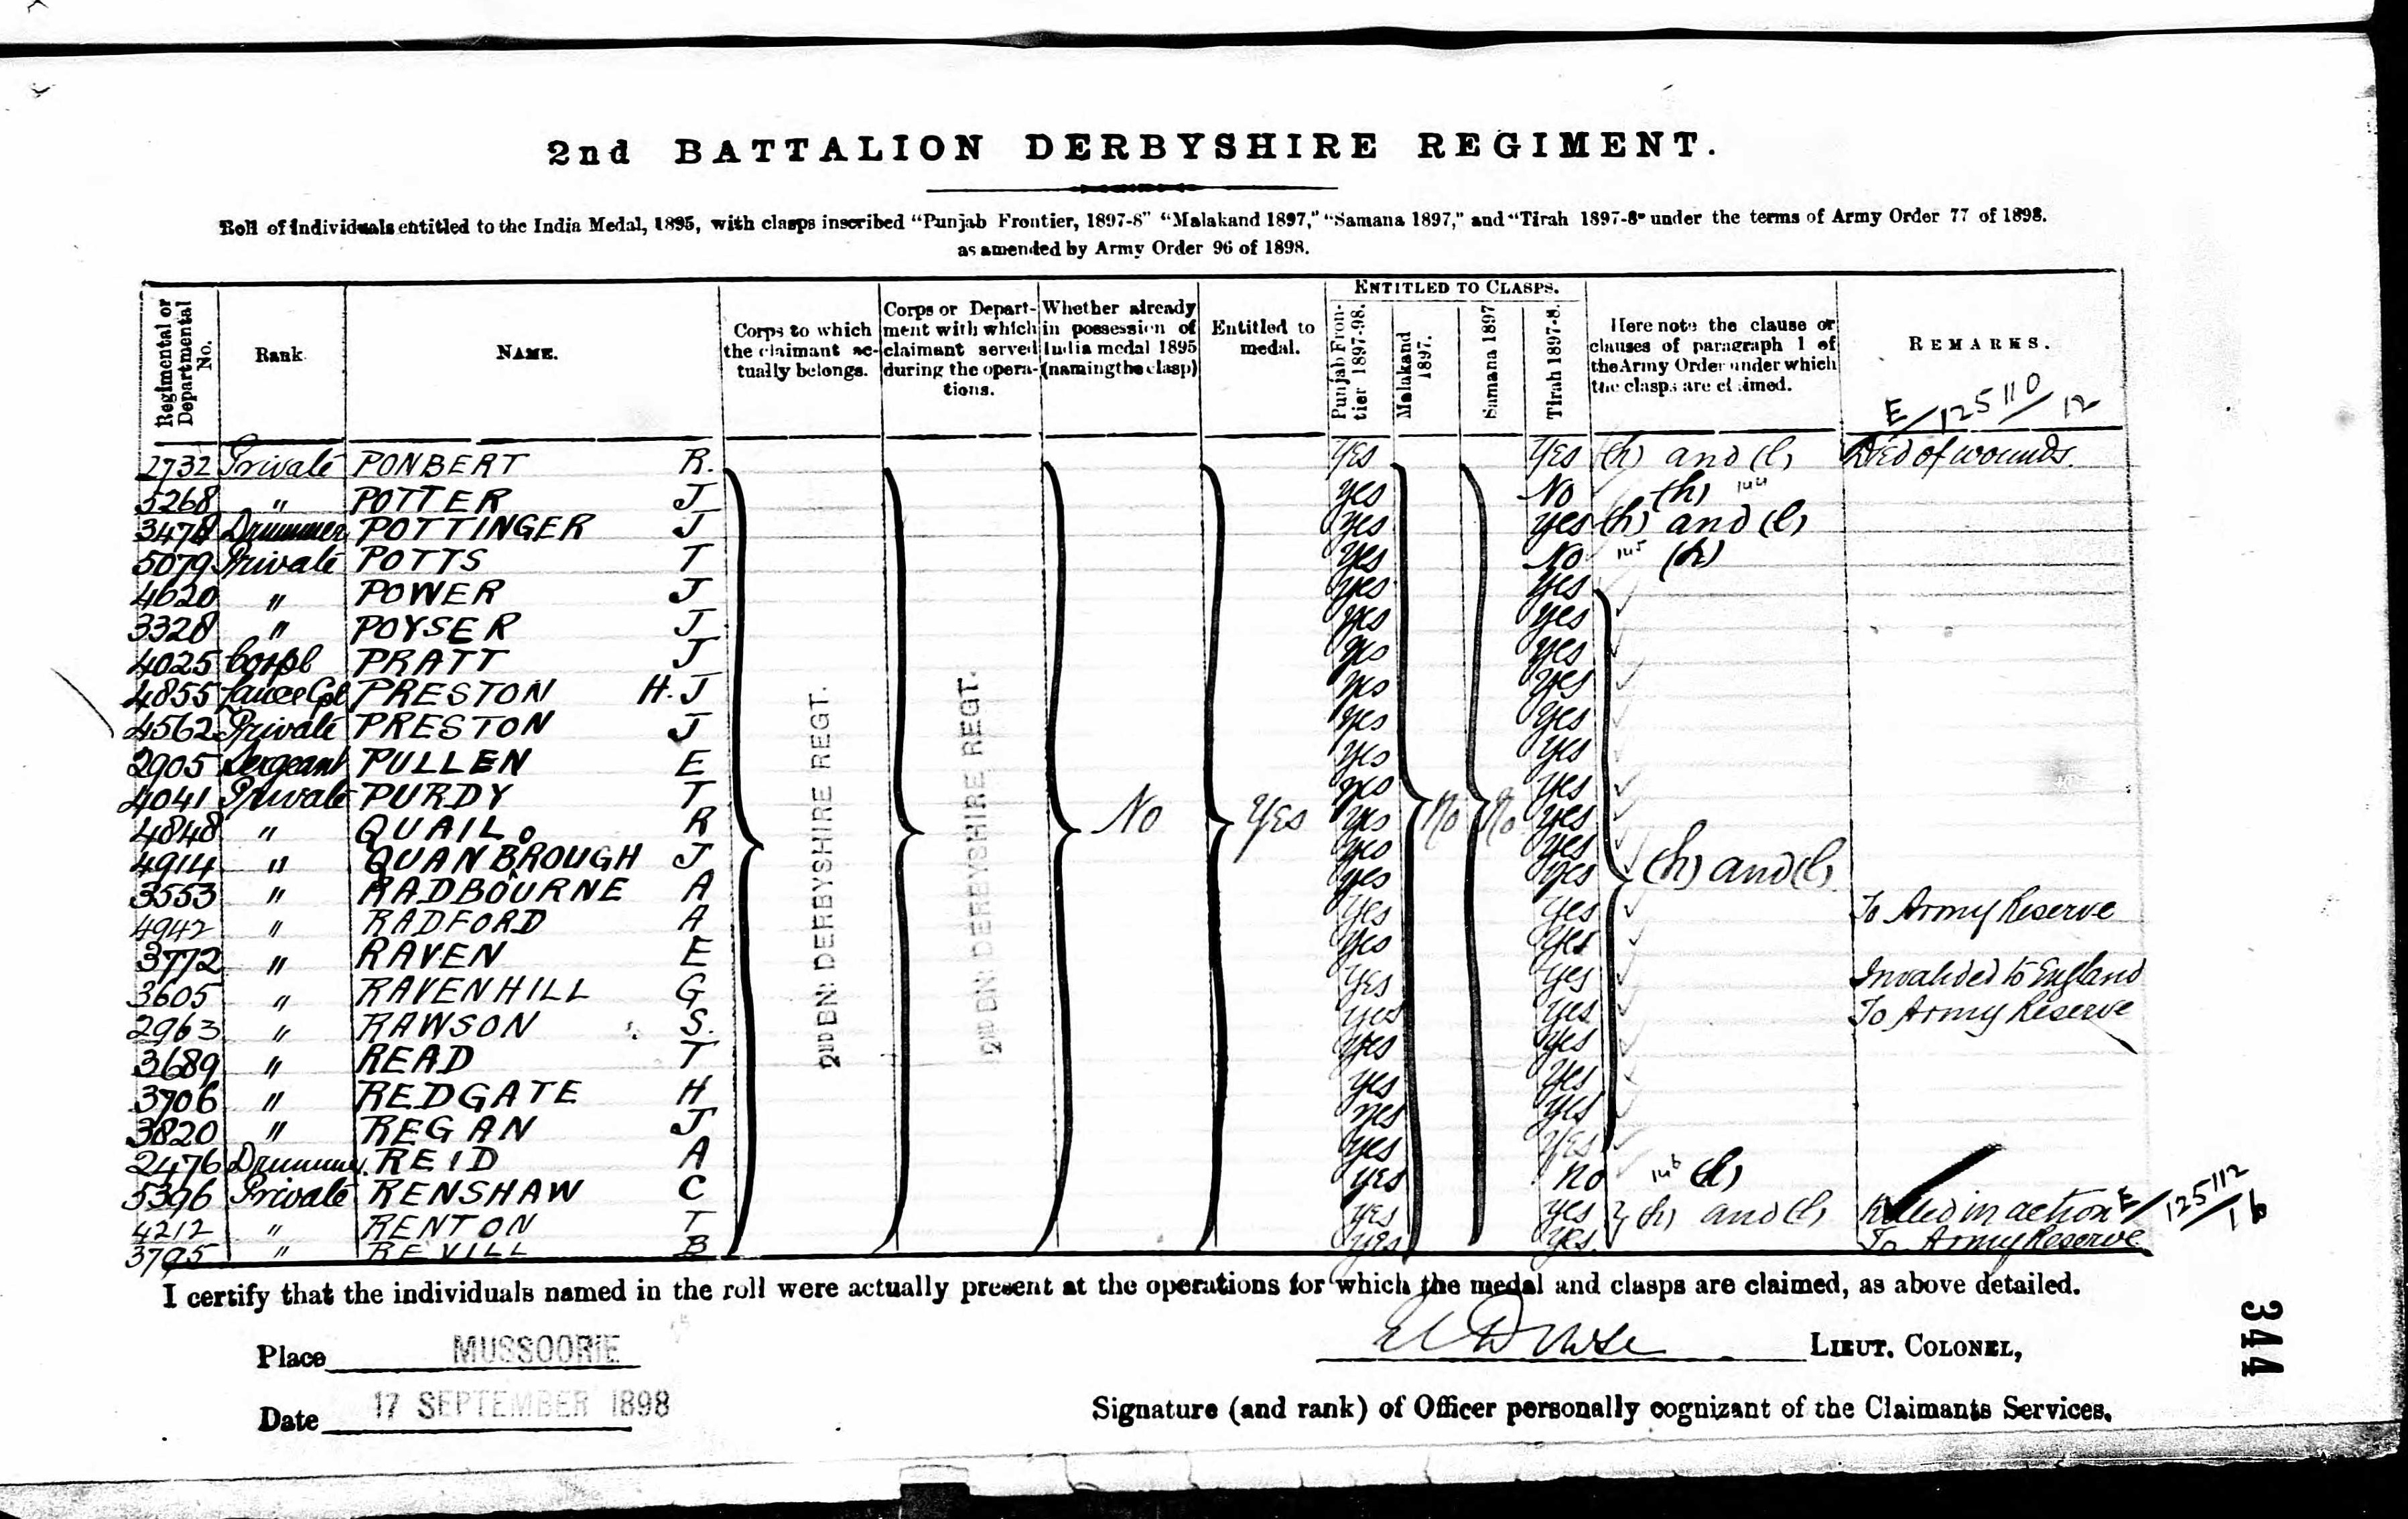 2nd BATTALION DERBYSHIRE REGIMENT.
Roll of individuals entitled to the India Medal, 1895, with clasps inscribed “Punjab Frontier, 1897-8” “Malakand 1897,” “Samana 1897,” and “Tirah 1897-8” under the terms of Army Order 77 of 1898.
as amended by Army Order 96 of 1898.
Regimental or Departmental No.
Rank
NAME.
Corps to which the claimant actually belongs.
Corps or Department with which claimant served during the operations.
Whether already in possession of India medal 1895 (naming the clasp)
Entitled to medal.
ENTITLED TO CLASPS.
Punjab Frontier 1897-98.
Malakand 1897.
Samana 1897
Tirah 1897-8.
Here note the clause or clauses of paragraph 1 of the Army Order under which the clasps are claimed.
REMARKS.
E/125110/12
2732 Private PONBERT R. Yes Yes (h) and (l) Died of wounds.
5268 " POTTER J Yes No (h) 144
3478 Drummer POTTINGER J Yes Yes (h) and (l)
5079 Private POTTS T Yes No 145 (h)
4620 " POWER J Yes Yes
3328 " POYSER J Yes Yes
4025 Corpl PRATT J Yes Yes
4855 Lance Cpl PRESTON H. J Yes Yes
4562 Private PRESTON J Yes Yes
2905 Sergeant PULLEN E Yes Yes
4041 Private PURDY T Yes Yes
4848 " QUAIL R Yes Yes
4914 " QUANBROUGH J Yes Yes
3553 " RADBOURNE A Yes Yes
4942 " RADFORD A Yes Yes To Army Reserve
3772 " RAVEN E Yes Yes
3605 " RAVENHILL G Yes Yes Invalided to England
2963 " RAWSON S. Yes Yes To Army Reserve
3689 " READ T Yes Yes
3706 " REDGATE H Yes Yes
3820 " REGAN J Yes Yes
2476 Drummer REID A Yes Yes
5396 Private RENSHAW C Yes No 146 (h)
4212 " RENTON T Yes Yes (h) and (l) Killed in action E/125112/16
3795 " REVILL B Yes Yes To Army Reserve
2ND BN: DERBYSHIRE REGT.
2ND BN: DERBYSHIRE REGT.
No
Yes
No
No
(h) and (l)
I certify that the individuals named in the roll were actually present at the operations for which the medal and clasps are claimed, as above detailed.
Place MUSSOORIE
LIEUT. COLONEL,
Date 17 SEPTEMBER 1898
Signature (and rank) of Officer personally cognizant of the Claimants Services.
344